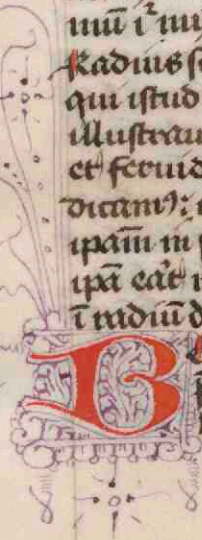 Radius s
qui istud
illustrau
et feruid
dicam9:
ipam in
ipa eat
i radiu d
B